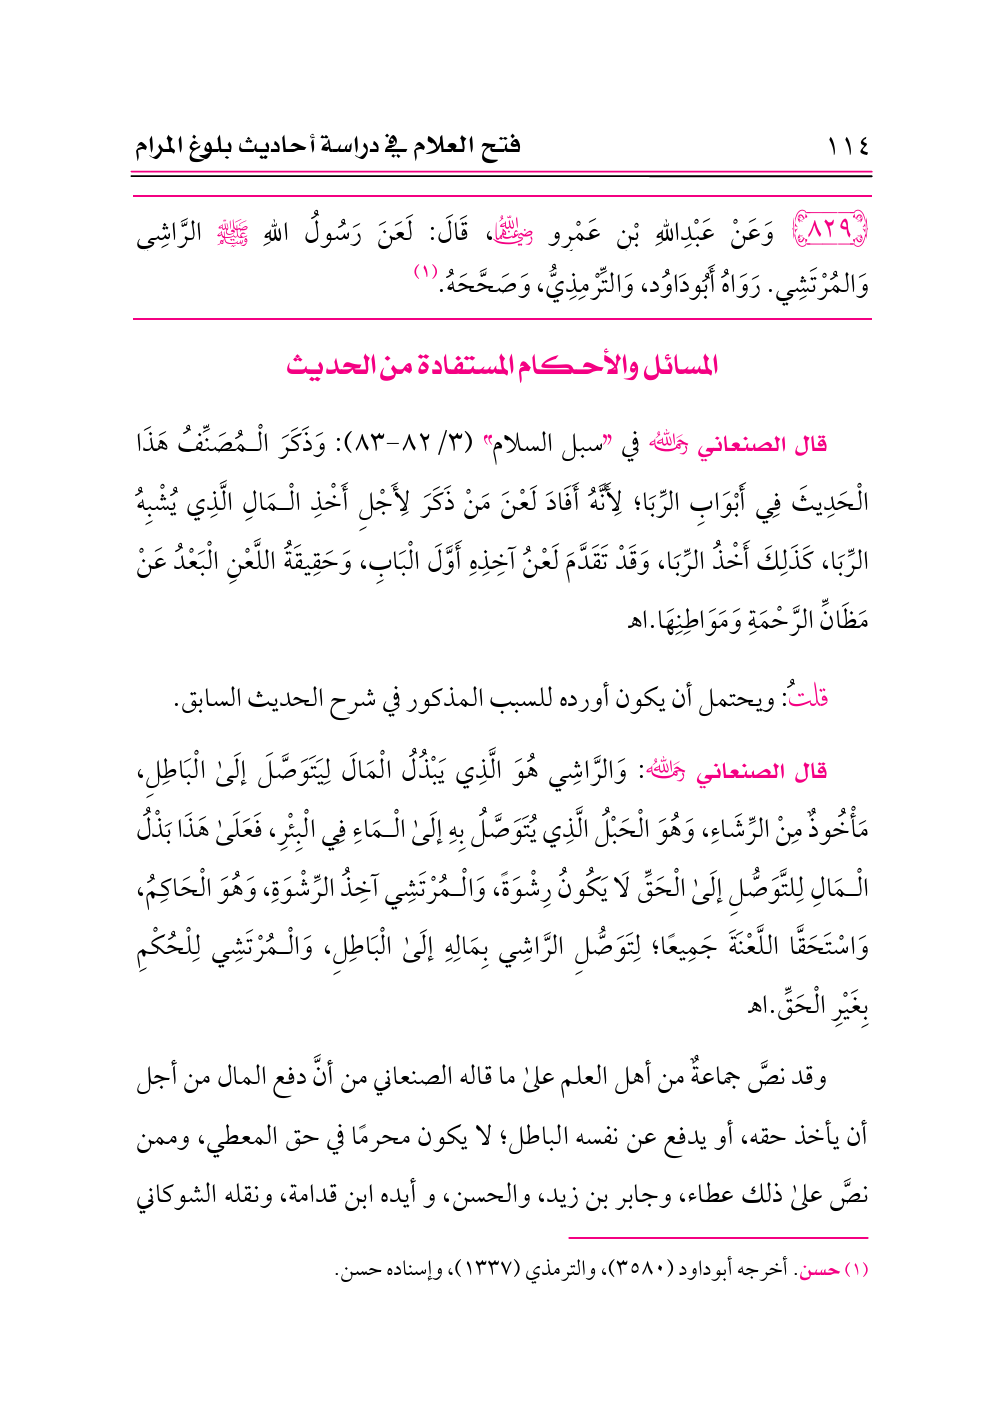 ١١٤ فتح العلام في دراسة أحاديث بلوغ المرام
٨٢٩ وَعَنْ عَبْدِاللهِ بْنِ عَمْرٍو رضي الله عنهما، قَالَ: لَعَنَ رَسُولُ اللهِ ﷺ الرَّاشِي
وَالمُرْتَشِي. رَوَاهُ أَبُودَاوُد، وَالتِّرْمِذِيُّ، وَصَحَّحَهُ.(١)
المسائل والأحكام المستفادة من الحديث
قال الصنعاني رحمه الله في "سبل السلام" (٣/ ٨٢-٨٣): وَذَكَرَ الْـمُصَنِّفُ هَذَا
الْحَدِيثَ فِي أَبْوَابِ الرِّبَا؛ لِأَنَّهُ أَفَادَ لَعْنَ مَنْ ذَكَرَ لِأَجْلِ أَخْذِ الْـمَالِ الَّذِي يُشْبِهُ
الرِّبَا، كَذَلِكَ أَخْذُ الرِّبَا، وَقَدْ تَقَدَّمَ لَعْنُ آخِذِهِ أَوَّلَ الْبَابِ، وَحَقِيقَةُ اللَّعْنِ الْبَعْدُ عَنْ
مَظَانِّ الرَّحْمَةِ وَمَوَاطِنِهَا.اهـ
قلتُ: ويحتمل أن يكون أورده للسبب المذكور في شرح الحديث السابق.
قال الصنعاني رحمه الله: وَالرَّاشِي هُوَ الَّذِي يَبْذُلُ الْمَالَ لِيَتَوَصَّلَ إلَىٰ الْبَاطِلِ،
مَأْخُوذٌ مِنْ الرِّشَاءِ، وَهُوَ الْحَبْلُ الَّذِي يُتَوَصَّلُ بِهِ إلَىٰ الْـمَاءِ فِي الْبِئْرِ، فَعَلَىٰ هَذَا بَذْلُ
الْـمَالِ لِلتَّوَصُّلِ إلَىٰ الْحَقِّ لَا يَكُونُ رِشْوَةً، وَالْـمُرْتَشِي آخِذُ الرِّشْوَةِ، وَهُوَ الْحَاكِمُ،
وَاسْتَحَقَّا اللَّعْنَةَ جَمِيعًا؛ لِتَوَصُّلِ الرَّاشِي بِمَالِهِ إلَىٰ الْبَاطِلِ، وَالْـمُرْتَشِي لِلْحُكْمِ
بِغَيْرِ الْحَقِّ.اهـ
وقد نصَّ جماعةٌ من أهل العلم علىٰ ما قاله الصنعاني من أنَّ دفع المال من أجل
أن يأخذ حقه، أو يدفع عن نفسه الباطل؛ لا يكون محرمًا في حق المعطي، وممن
نصَّ علىٰ ذلك عطاء، وجابر بن زيد، والحسن، و أيده ابن قدامة، ونقله الشوكاني
(١) حسن. أخرجه أبوداود (٣٥٨٠)، والترمذي (١٣٣٧)، وإسناده حسن.